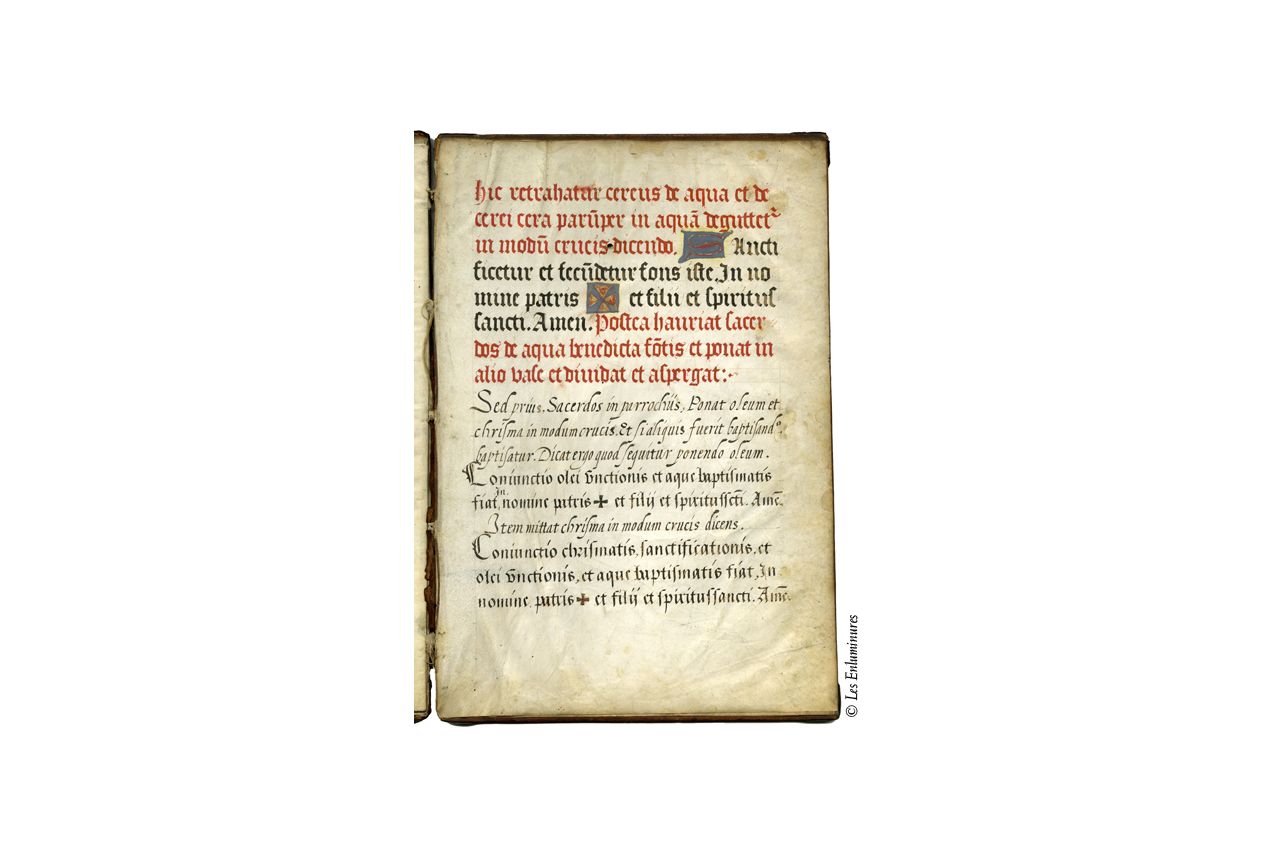 hic retrahatur cereus de aqua et de
cerei cera parũper in aquã deguttet᷑
in modũ crucis dicendo. Sancti
ficetur et fecũdetur fons iste. In no
mine patris ✠ et filii et spiritus
sancti. Amen. Postea hauriat sacer
dos de aqua benedicta fõtis et ponat in
alio vase et diuidat et aspergat:·
Sed prius. Sacerdos in parrochiis, Ponat oleum et
chrisma in modum crucis. Et si aliquis fuerit baptisandꝰ,
baptisatur. Dicat ergo quod sequitur ponendo oleum.
Coniunctio olei v̄nctionis et aque baptismatis
fiat, In nomine patris ✠ et filij et spiritus sc̃ti. Amē.
Item mittat chrisma in modum crucis dicens.
Coniunctio chrismatis, sanctificationis, et
olei v̄nctionis, et aque baptismatis fiat, In
nomine patris ✠ et filij et spiritus sancti. Amē.
© Les Enluminures